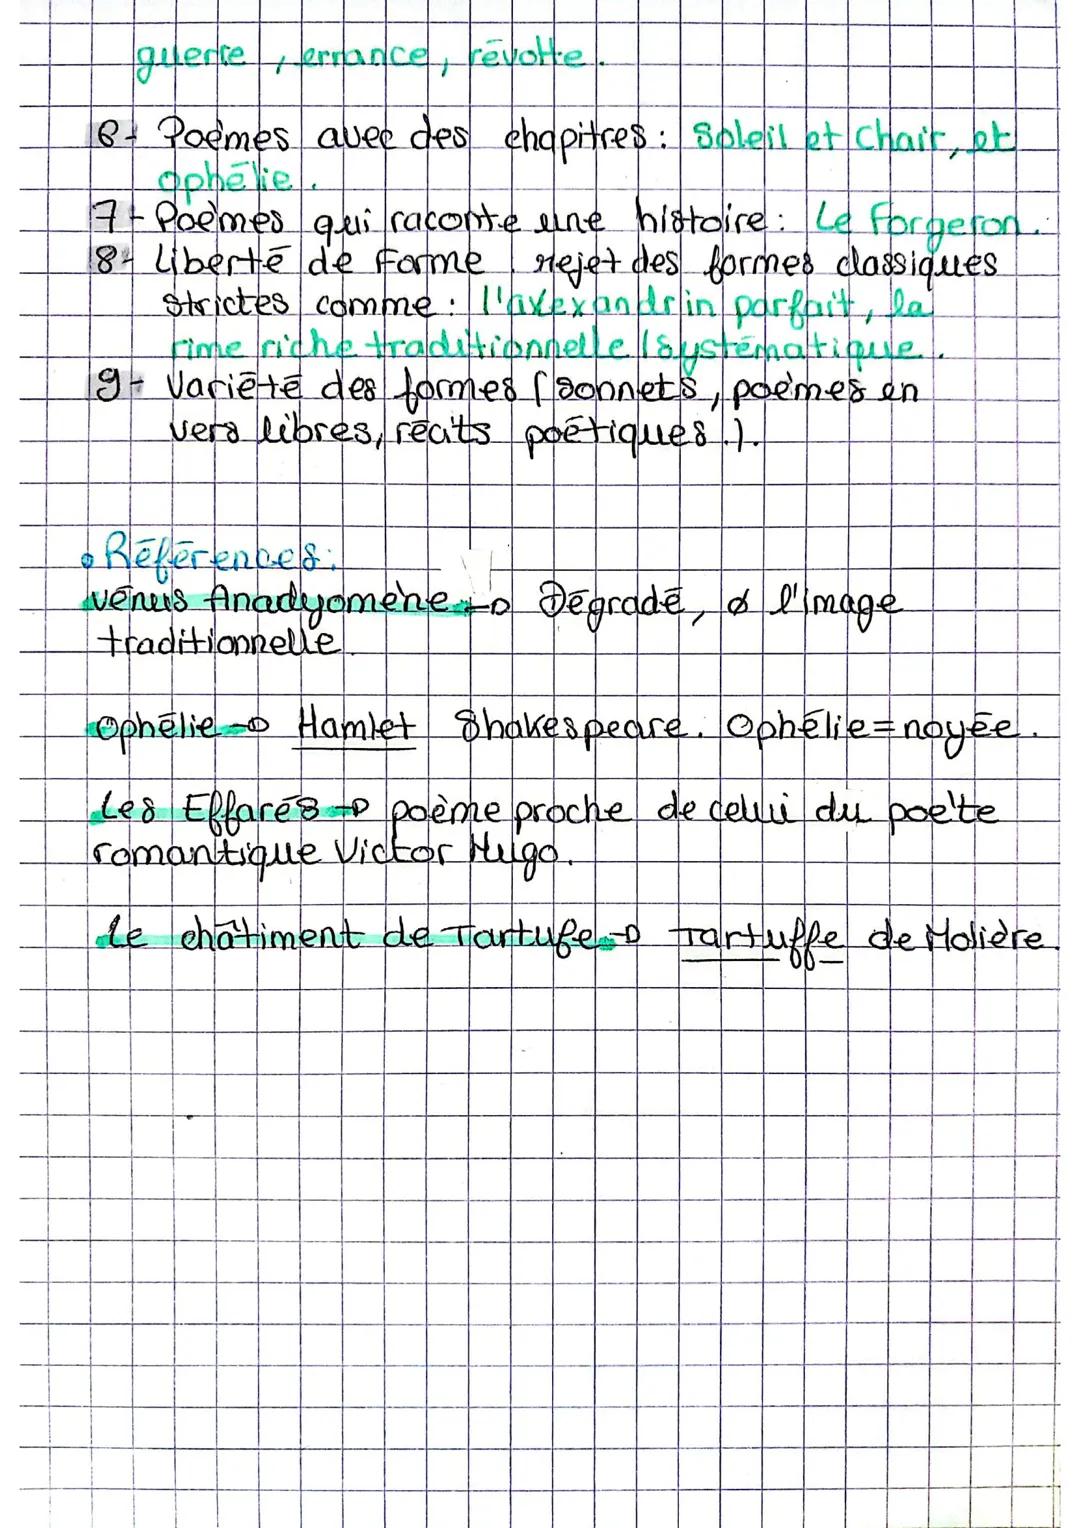 guerre, errance, révolte.
6- Poèmes avec des chapitres : Soleil et Chair, et
ophélie.
7- Poèmes qui raconte une histoire : Le Forgeron.
8- Liberté de Forme. rejet des formes classiques
strictes comme : l'alexandrin parfait, la
rime riche traditionnelle (systématique.
9- Variété des formes (sonnets, poèmes en
vers libres, récits poétiques.).
• Références:
vénus Anadyomène → Dégradé, ø l'image
traditionnelle.
Ophélie → Hamlet Shakespeare. Ophélie = noyée.
Les Effarés → poème proche de celui du poète
romantique Victor Hugo.
Le châtiment de Tartufe → Tartuffe de Molière.